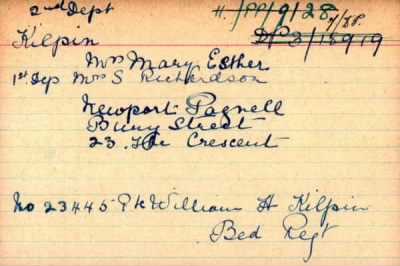 2nd Dept
H/PP/9/28
Kilpin
DP 3/15919
Mrs Mary Esther
1st Dep Mrs S Richardson
Newport Pagnell
Bury Street
23 The Crescent
No 23445 Pte William H Kilpin
Bed Regt